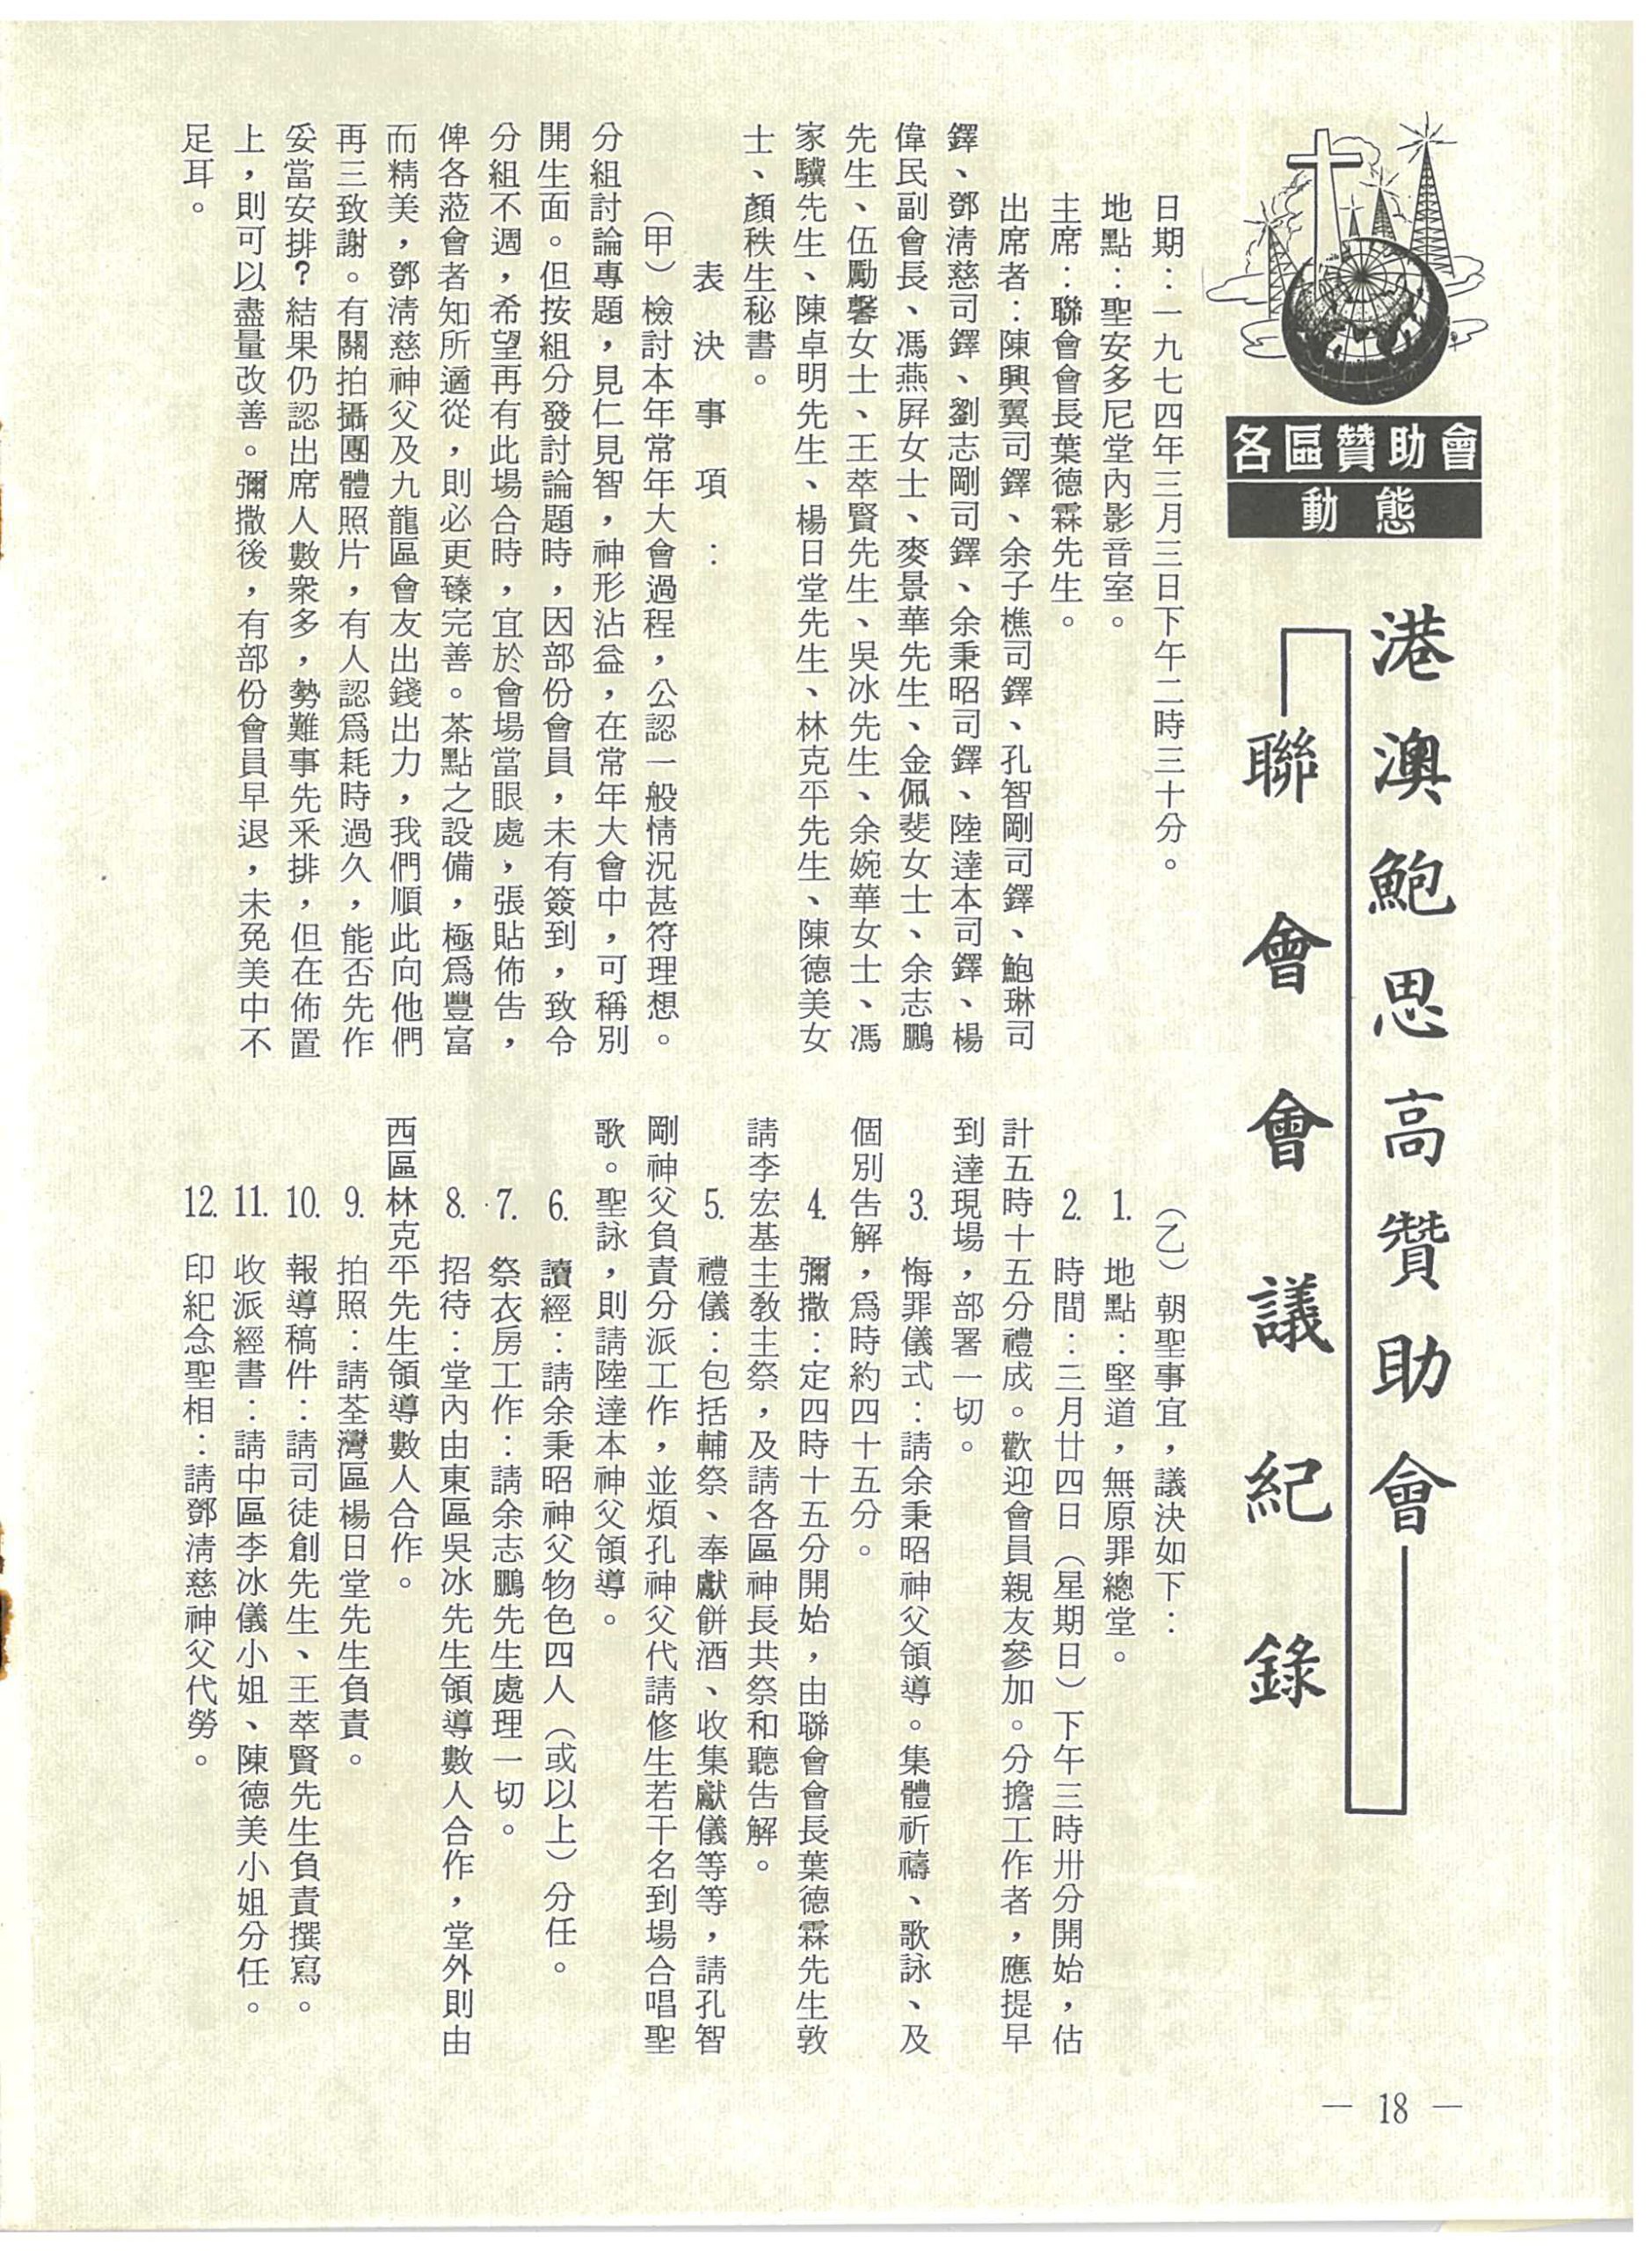 各區贊助會
動態
港澳鮑思高贊助會
聯會會議紀錄
日期：一九七四年三月三日下午二時三十分。
地點：聖安多尼堂內影音室。
主席：聯會會長葉德霖先生。
出席者：陳興翼司鐸、余子樵司鐸、孔智剛司鐸、鮑琳司
鐸、鄧淸慈司鐸、劉志剛司鐸、余秉昭司鐸、陸達本司鐸、楊
偉民副會長、馮燕屛女士、麥景華先生、金佩斐女士、余志鵬
先生、伍勵馨女士、王萃賢先生、吳冰先生、余婉華女士、馮
家驥先生、陳卓明先生、楊日堂先生、林克平先生、陳德美女
士、顏秩生秘書。
表決事項：
（甲）檢討本年常年大會過程，公認一般情況甚符理想。
分組討論專題，見仁見智，神形沾益，在常年大會中，可稱別
開生面。但按組分發討論題時，因部份會員，未有簽到，致令
分組不週，希望再有此場合時，宜於會場當眼處，張貼佈告，
俾各蒞會者知所適從，則必更臻完善。茶點之設備，極爲豐富
而精美，鄧淸慈神父及九龍區會友出錢出力，我們順此向他們
再三致謝。有關拍攝團體照片，有人認爲耗時過久，能否先作
妥當安排？結果仍認出席人數衆多，勢難事先釆排，但在佈置
上，則可以盡量改善。彌撒後，有部份會員早退，未免美中不
足耳。
（乙）朝聖事宜，議決如下：
1. 地點：堅道，無原罪總堂。
2. 時間：三月廿四日（星期日）下午三時卅分開始，估
計五時十五分禮成。歡迎會員親友參加。分擔工作者，應提早
到達現場，部署一切。
3. 悔罪儀式：請余秉昭神父領導。集體祈禱、歌詠、及
個別告解，爲時約四十五分。
4. 彌撒：定四時十五分開始，由聯會會長葉德霖先生敦
請李宏基主敎主祭，及請各區神長共祭和聽告解。
5. 禮儀：包括輔祭、奉獻餅酒、收集獻儀等等，請孔智
剛神父負責分派工作，並煩孔神父代請修生若干名到場合唱聖
歌。聖詠，則請陸達本神父領導。
6. 讀經：請余秉昭神父物色四人（或以上）分任。
7. 祭衣房工作：請余志鵬先生處理一切。
8. 招待：堂內由東區吳冰先生領導數人合作，堂外則由
西區林克平先生領導數人合作。
9. 拍照：請荃灣區楊日堂先生負責。
10. 報導稿件：請司徒創先生、王萃賢先生負責撰寫。
11. 收派經書：請中區李冰儀小姐、陳德美小姐分任。
12. 印紀念聖相：請鄧淸慈神父代勞。
— 18 —